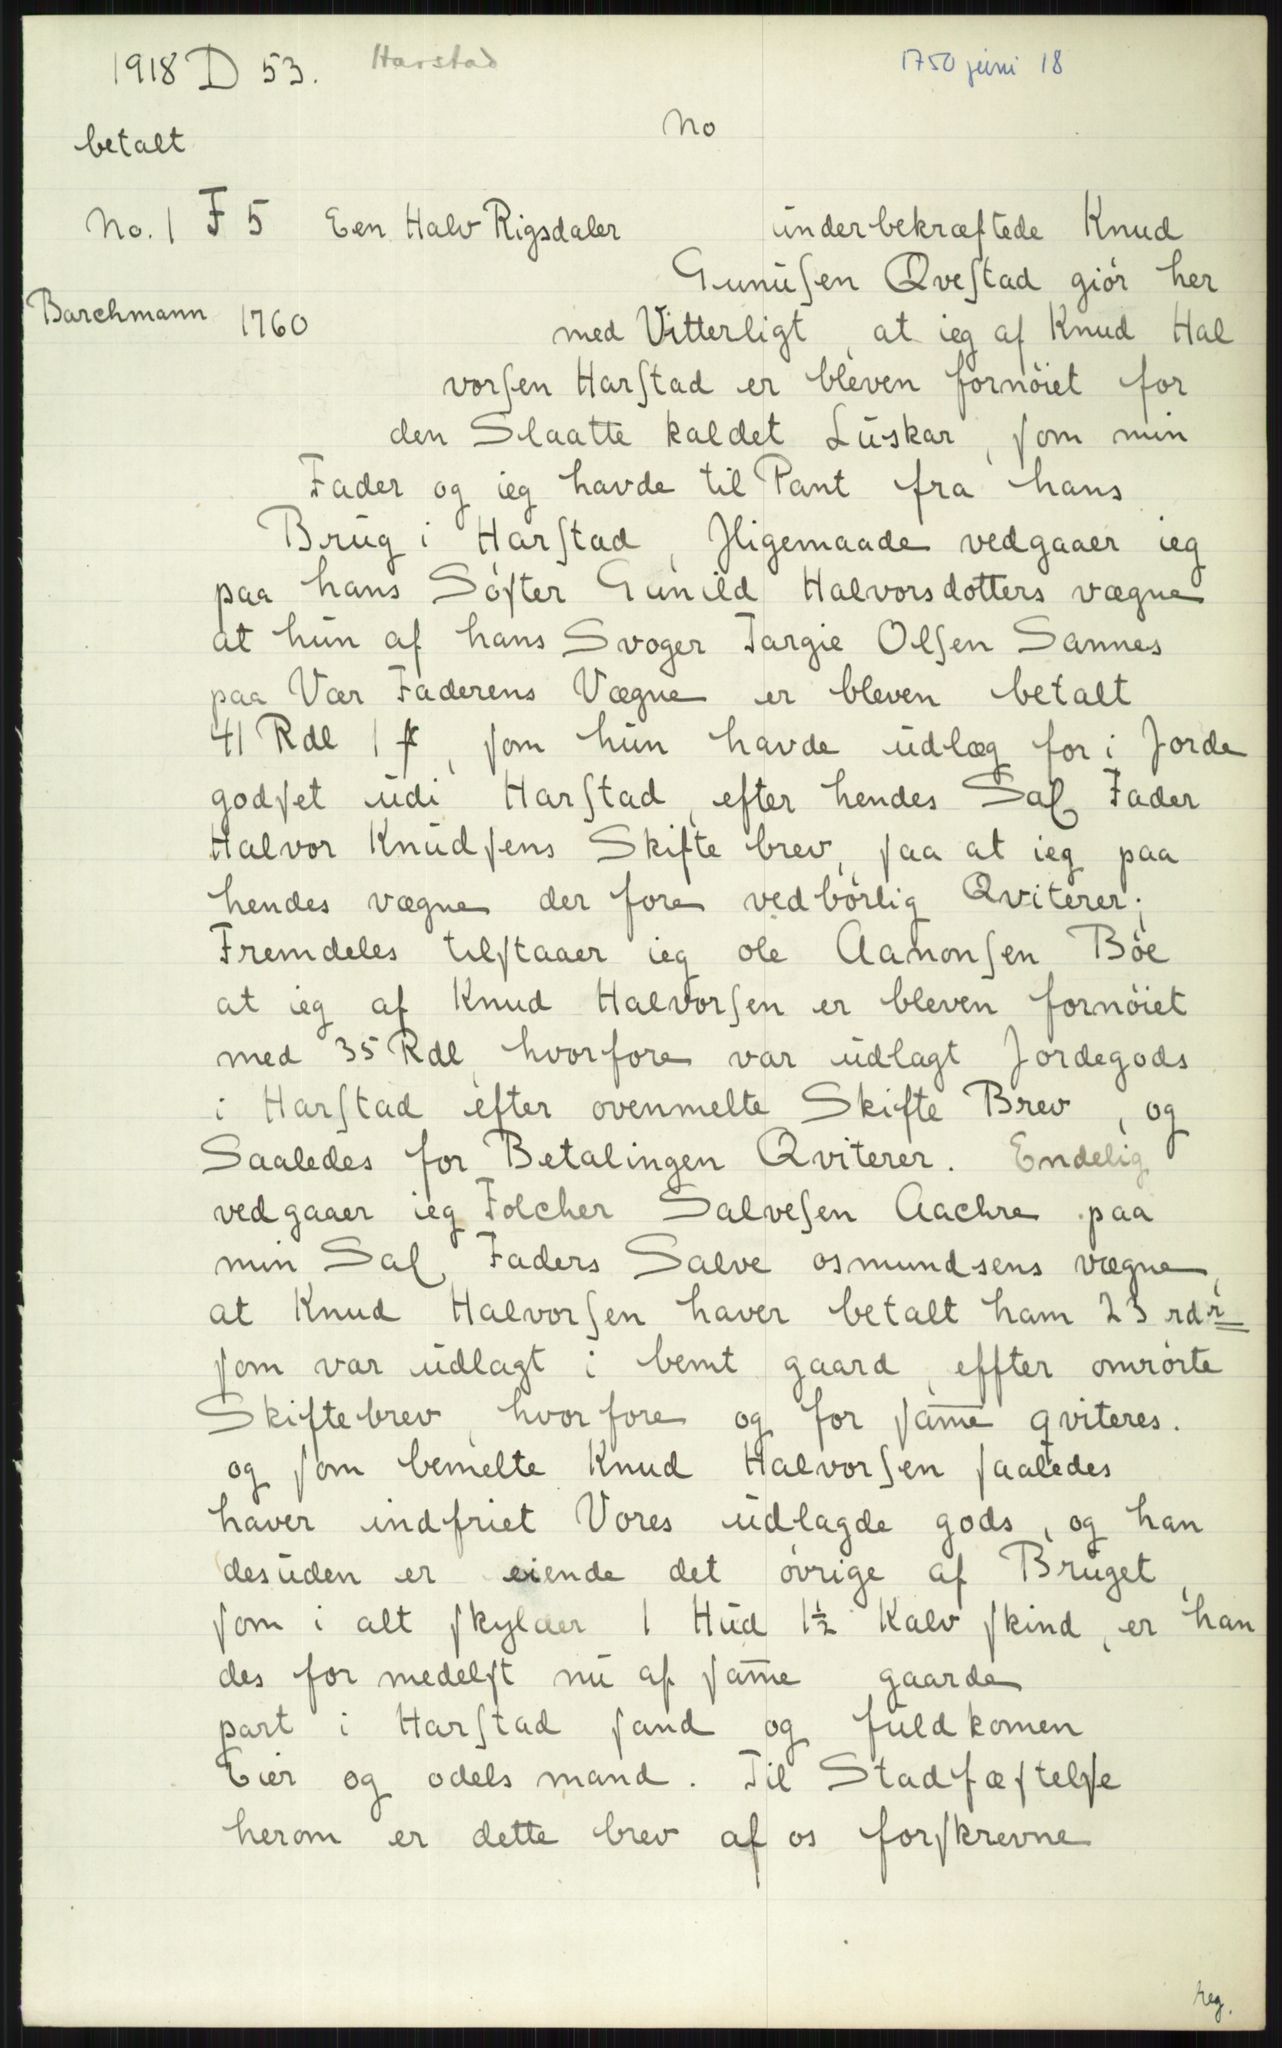 1918 D 53. Harstad 1750 juni 18
No
betalt
No. 1 F 5 Een Halv Rigsdaler underbekræftede Knud
Gunuſen Qveſtad giör her
Barchmann 1760 med Vitterligt, at ieg af Knud Hal
vorſen Harſtad er bleven fornöiet for
den Slaatte kaldet Luskar, ſom min
Fader og ieg havde til Pant fra hans
Brug i Harſtad, Jligemaade vedgaaer ieg
paa hans Söſter Gunild Halvorsdotters vægne
at hun af hans Svoger Targie Olſen Sannes
paa Vær Faderens Vægne er bleven betalt
41 Rdl 1 , ſom hun havde udlæg for i Jorde
godſet udi Harſtad, efter hendes Sal Fader
Halvor Knudſens Skifte brev, ſaa at ieg paa
hendes vægne der fore vedbörlig Qviterer;
Fremdeles tilſtaaer ieg ole Aanonſen Böe
at ieg af Knud Halvorſen er bleven fornöiet
med 35 Rdl, hvorfore var udlagt Jordegods
i Harſtad efter ovenmelte Skifte Brev, og
Saaledes for Betalingen Qviterer. Endelig
vedgaaer ieg Folcher Salveſen Aachre paa
min Sal Faders Salve osmundsens vægne,
at Knud Halvorſen haver betalt ham 23 rdr
ſom var udlagt i bemt gaard, effter omrörte
Skiftebrev, hvorfore og for ſam̅e qviteres.
og ſom bemelte Knud Halvorſen ſaaledes
haver indfriet Vores udlagde gods, og han
desuden er eiende det övrige af Bruget,
ſom i alt ſkylder 1 Hud 1½ Kalv ſkind, er han
des for medelſt nu af ſam̅e gaarde
part i Harſtad ſand og fuldkomen
Eier og odels mand. Til Stadfæſtelſe
herom er dette brev af os forſkrevne
reg.